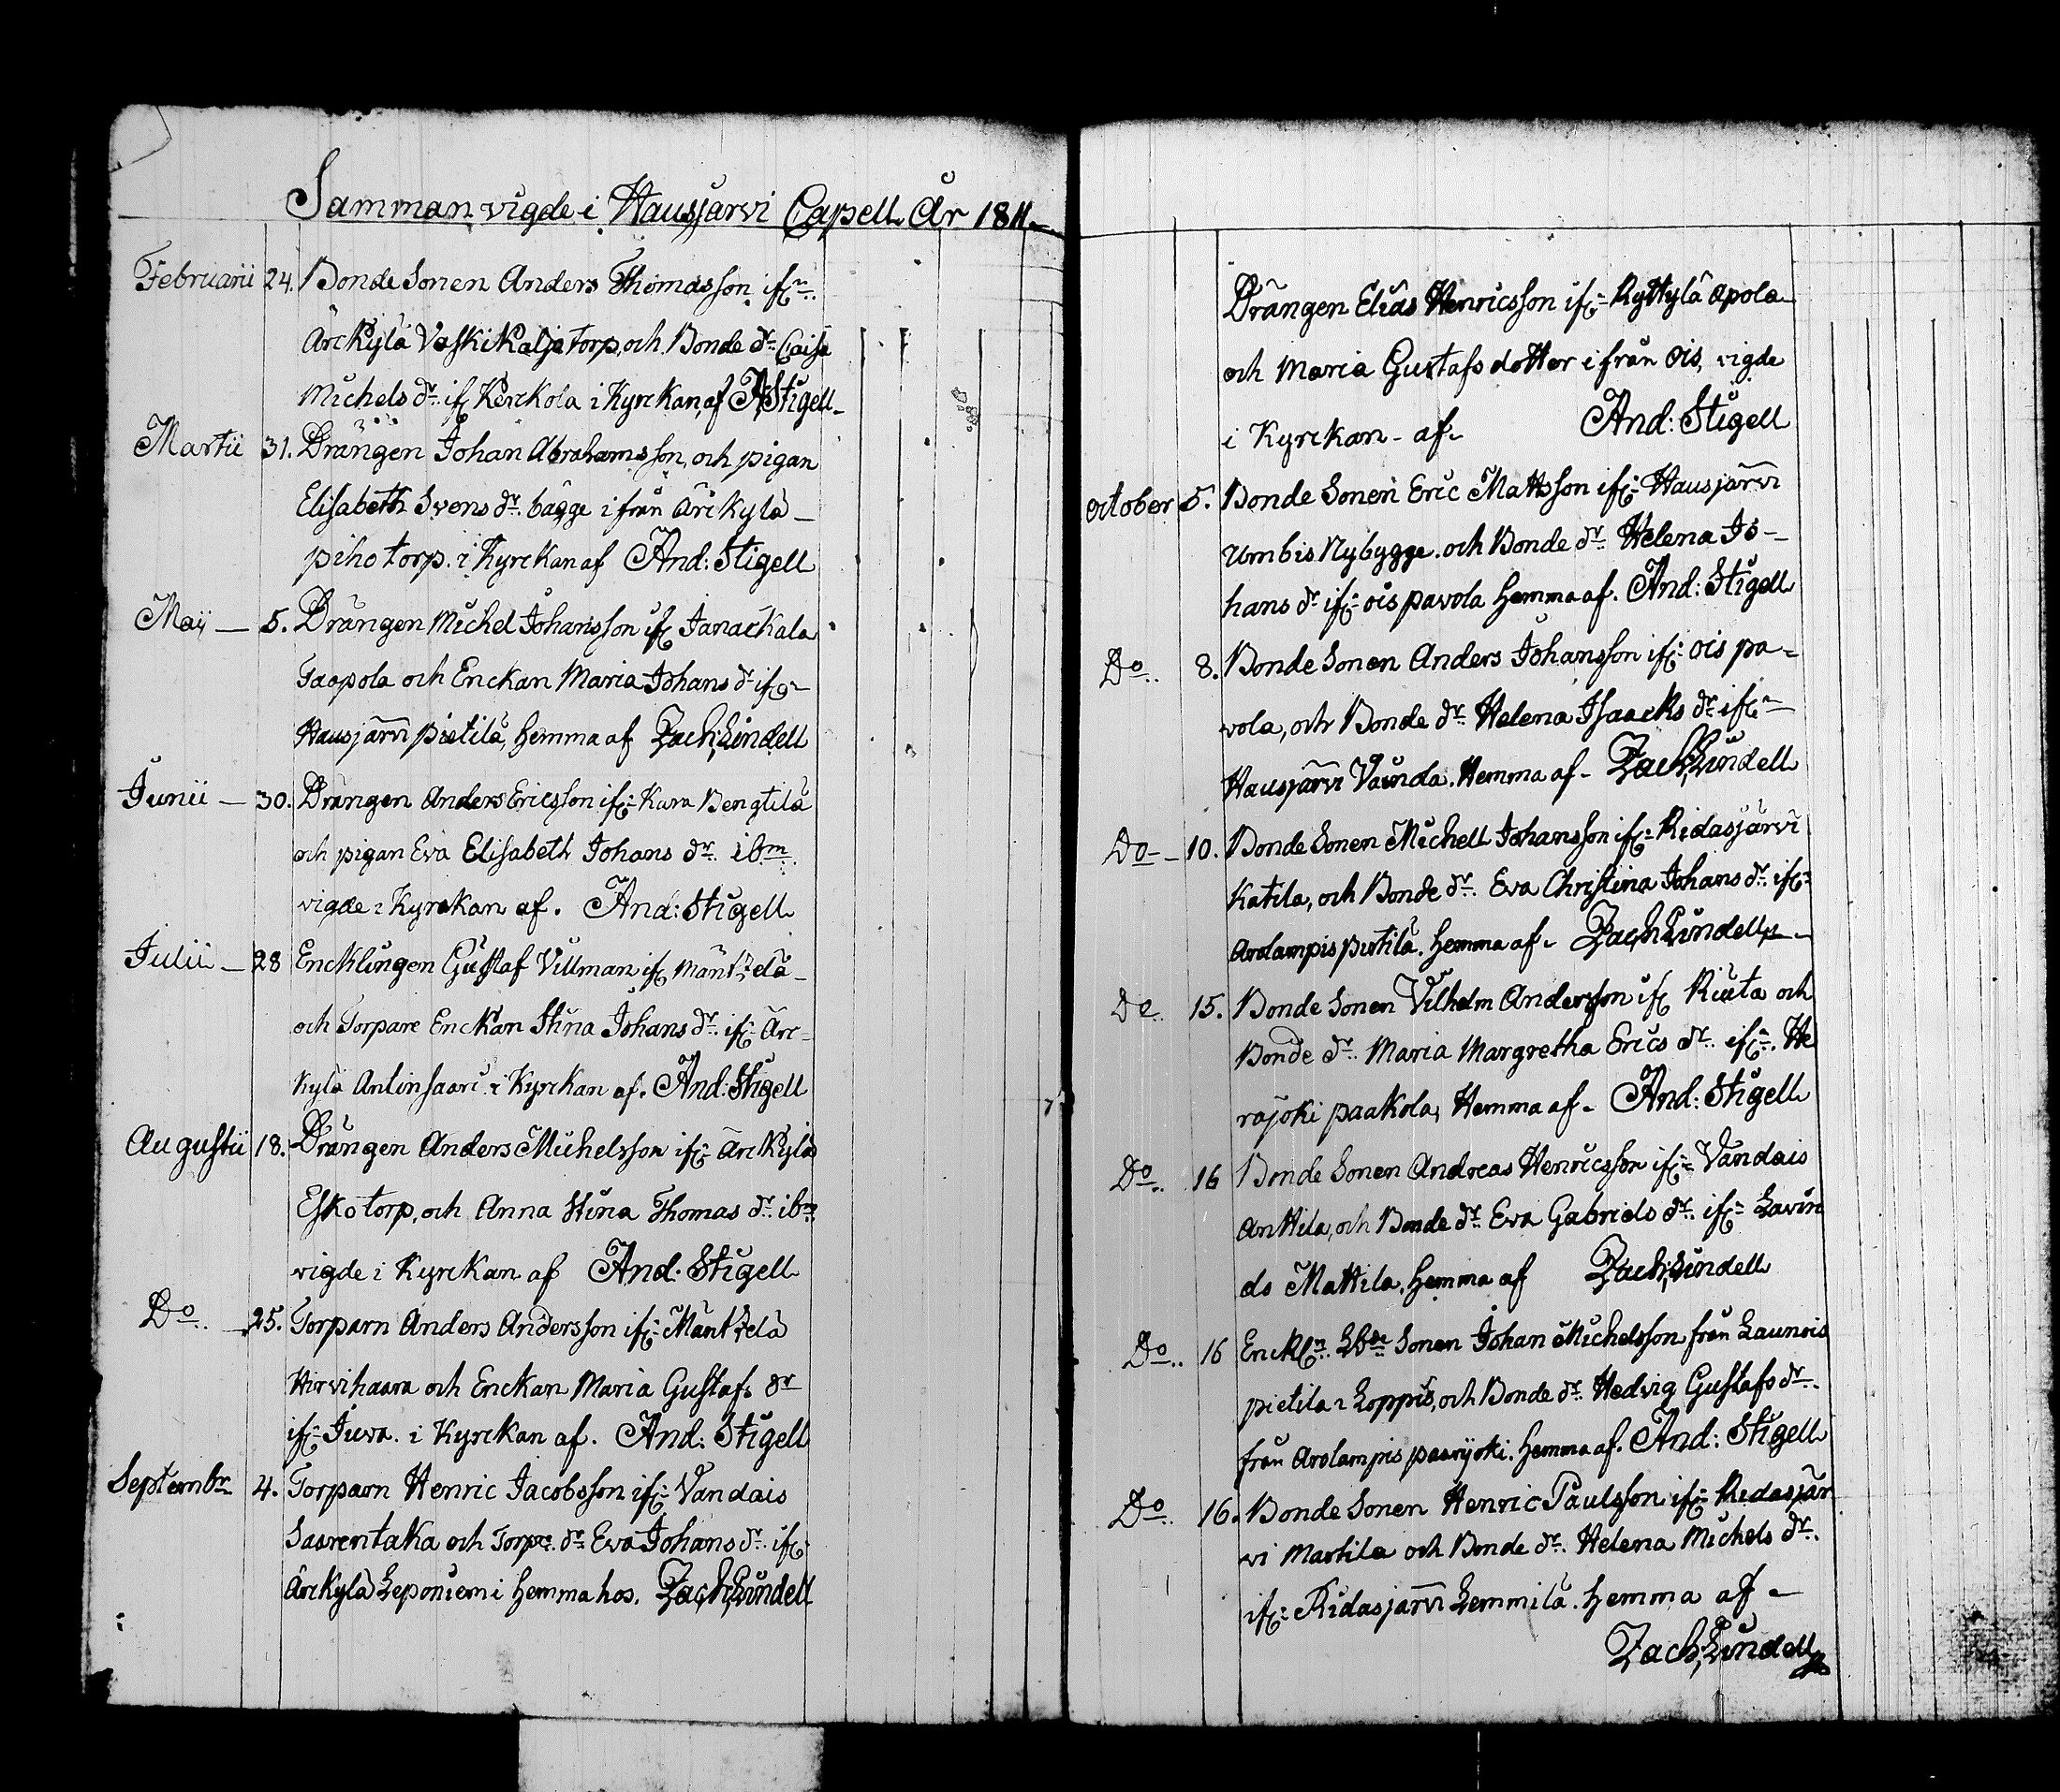 Sammanvigde i Hausjärvi Capell År 1811.
Februarii 24. Bonde Sonen Anders Thomasson ifrn
Ärckylä Vaskikalja torp, och Bonde dr Caisa
Michels dr ifr Kerckola i Kyrckan, af A Stigell
Martii 31. Drängen Johan Abrahamsson, och pigan
Elisabeth Svens dr. bägge ifrån Ärckylä
piho torp. i Kyrckan af And: Stigell
Maij 5. Drängen Michel Johansson ifr Janackala
Tapola och Enckan Maria Johans dr ifrn
Hausjärvi pietilä, hemma af Zach: Lindell
Junii 30. Drängen Anders Ericsson ifr: Kara Bengtilä
och pigan Eva Elisabeth Johans dr. ibm.
vigde i Kyrckan af. And: Stigell
Julii 28 Encklingen Gustaf Villman ifr Mäntzelä
och Torpare Enckan Stina Johans dr. ifr: Ärc-
kylä Antinsaari. i Kyrckan af. And: Stigell
Augustii 18. Drängen Anders Michelsson ifr: Ärckylä
Esko torp, och Anna Stina Thomas dr. ibm
vigde i Kyrckan af And. Stigell
Do. 25. Torparn Anders Andersson ifr: Mäntzelä
Hirvihaara och Enckan Maria Gustafs dr
ifr: Juva. i Kyrckan af. And: Stigell
Septembr 4. Torparn Henric Jacobsson ifr: Vandais
Saarentaka och Torpr. dr Eva Johans dr. ifr:
Ärckylä Leponiemi hemma hos. Zach; Lindell
Drängen Elias Henricsson ifr: Ryttylä apola
och Maria Gustafs dotter ifrån Ois, vigde
i Kyrckan af. And: Stigell
October 5. Bonde Sonen Eric Mattsson ifr: Hausjärvi
Umbis Nybygge. och Bonde dr. Helena Jo-
hans dr ifr: ois pavola hemma af. And: Stigell
Do. 8. Bonde Sonen Anders Johansson ifr: ois pa-
vola, och Bonde dr. Helena Isaacks dr. ifrn
Hausjärvi Vaunda. Hemma af. Zach; Lindell
Do 10. Bonde Sonen Michell Johansson ifr: Ridasjärvi
Katila, och Bonde dr. Eva Christina Johans dr. ifr:
Arolampis pietilä. hemma af. Zach; Lindell
Do. 15. Bonde Sonen Vilhelm Andersson ifr Riuta och
Bonde dr. Maria Margretha Erics dr. ifrn. He
rajoki paakola, Hemma af. And: Stigell
Do. 16 Bonde Sonen Andreas Henricsson ifr: Vandais
Anttila, och Bonde dr. Eva Gabriels dr. ifr: Lavin
do Mattila, hemma af Zach; Lindell
Do.. 16 Enckln. Bde Sonen Johan Michelsson från Launois
pietila i Loppis, och Bonde dr. Hedvig Gustafs dr.
från Arolampis paarijoki. hemma af. And: Stigell
Do. 16. Bonde Sonen Henric Paulsson ifr: Ridasjär
vi Martila och Bonde dr. Helena Michels dr.
ifr: Ridasjärvi Lemmilä. hemma af
Zach; Lindell